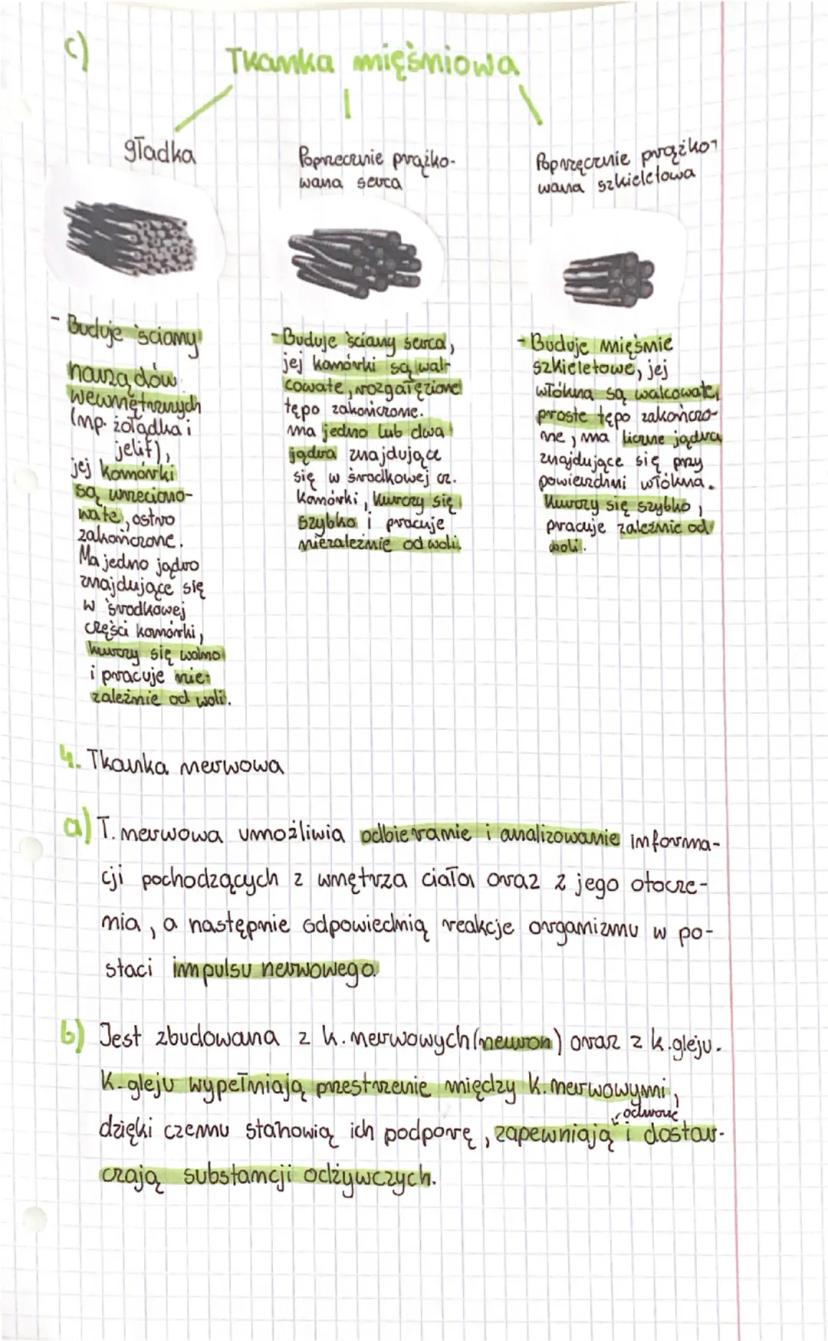 c)
Tkanka mięśniowa
gładka
Poprzecznie prążko-
wana serca
Poprzęcznie prążko-
wana szkieletowa
- Buduje ściany
narządów
wewnętrznych
(np. żołądka i
jelit),
jej komórki
są wrzeciono-
wate, ostro
zakończone.
Ma jedno jądro
znajdujące się
w środkowej
części komórki,
kurczy się wolno
i pracuje nie-
zależnie od woli.
- Buduje ściany serca,
jej komórki są wal-
cowate, rozgałęzione
tępo zakończone.
ma jedno lub dwa
jądra znajdujące
się w środkowej cz.
komórki, kurczy się
szybko i pracuje
niezależnie od woli.
- Buduje mięśnie
szkieletowe, jej
włókna są walcowate,
proste tępo zakończo-
ne, ma liczne jądra
znajdujące się przy
powierzchni włókna.
Kurczy się szybko,
pracuje zależnie od
woli.
4. Tkanka nerwowa
a) T. nerwowa umożliwia odbieranie i analizowanie informa-
cji pochodzących z wnętrza ciała oraz z jego otocze-
nia, a następnie odpowiednią reakcje organizmu w po-
staci impulsu nerwowego.
b) Jest zbudowana z k. nerwowych (neuron) oraz z k. gleju.
K. gleju wypełniają przestrzenie między k. nerwowymi,
dzięki czemu stanowią ich podporę, zapewniają ochronę i dostar-
czają substancji odżywczych.